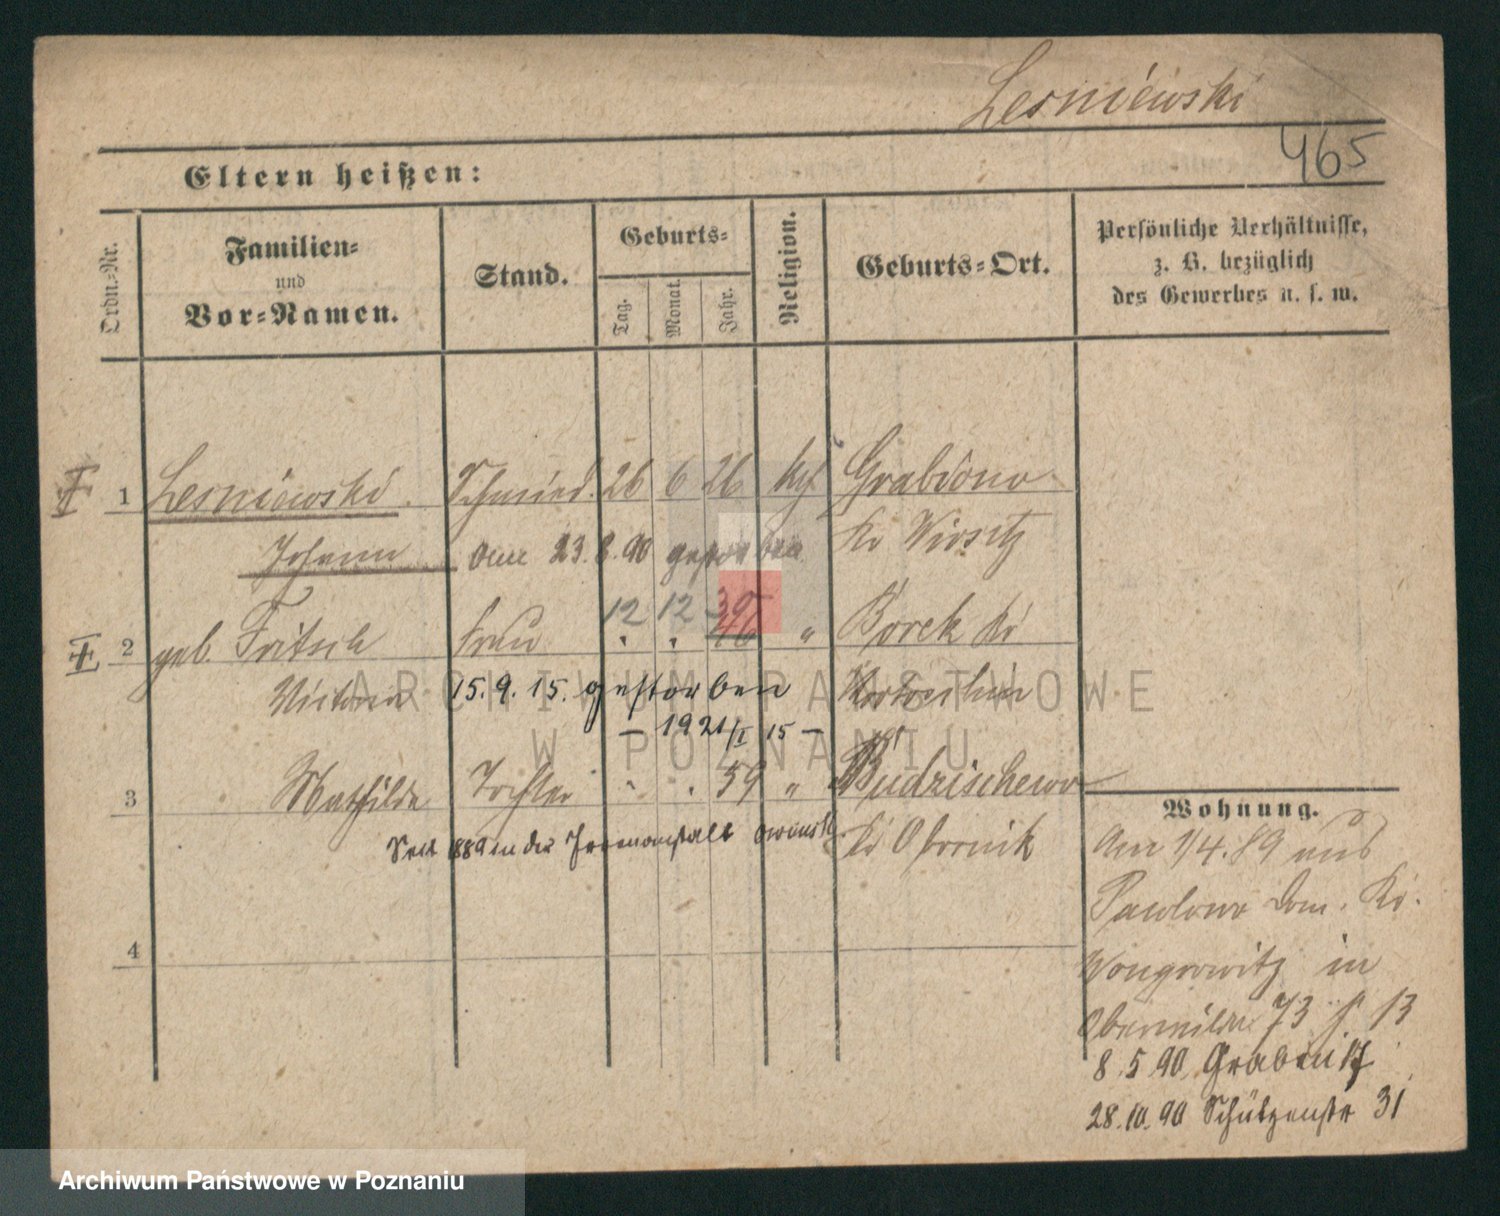 Lesniewski
465
Eltern heißen:
Ordn.-Nr. Familien- und Vor-Namen. Stand. Geburts- Tag. Monat. Jahr. Religion. Geburts-Ort. Persönliche Verhältnisse, z. B. bezüglich des Gewerbes u. s. w.
1 Lesniewski Schmied. 26 6 26 kath Grabiono
Johann am 23.8.90 gestorben Kr Wirsitz
2 geb. Fritsch Frau 12 12 39 46 " Borek Kr
Victoria 15.9.15. gestorben
— 1921/I 15 —
3 Mathilde Tochter . . 59 " Budzischewo
Seit 1889 in der Irrenanstalt Owinsk Kr Obornik
4
Wohnung.
Am 1/4.89 aus
Pawlowo Dom. Kr.
Wongrowitz in
Obermilda 73 13
8.5.90. Graben 17
28.10.90 Schützenstr 31
ARCHIWUM PAŃSTWOWE
W POZNANIU
Archiwum Państwowe w Poznaniu